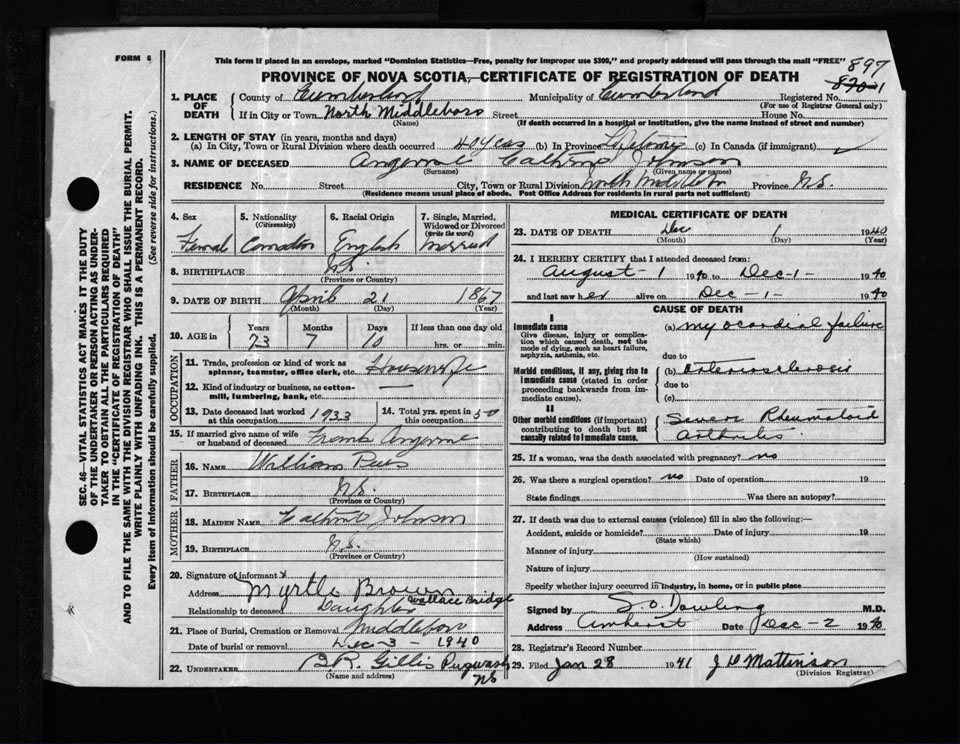 FORM 6
This form if placed in an envelope, marked "Dominion Statistics—Free, penalty for improper use $300," and properly addressed will pass through the mail "FREE"
897
PROVINCE OF NOVA SCOTIA, CERTIFICATE OF REGISTRATION OF DEATH
1. PLACE OF DEATH
County of Cumberland Municipality of Cumberland Registered No.
(For use of Registrar General only)
If in City or Town North Middleboro Street House No.
(Name) (If death occurred in a hospital or institution, give the name instead of street and number)
2. LENGTH OF STAY (in years, months and days)
(a) In City, Town or Rural Division where death occurred 40 years (b) In Province Lifetime (c) In Canada (if immigrant)
3. NAME OF DECEASED Johnson
(Surname) (Given name or names)
RESIDENCE No. Street City, Town or Rural Division North Province N.S.
(Residence means usual place of abode. Post Office Address for residents in rural parts not sufficient)
4. Sex
Female
5. Nationality
(Citizenship)
Canadian
6. Racial Origin
English
7. Single, Married, Widowed or Divorced
(write the word)
Married
8. BIRTHPLACE N.S.
(Province or Country)
9. DATE OF BIRTH April 21 1867
(Month) (Day) (Year)
10. AGE in
Years Months Days If less than one day old
73 7 10 hrs. or min.
OCCUPATION
11. Trade, profession or kind of work as spinner, teamster, office clerk, etc. Housewife
12. Kind of industry or business, as cotton-mill, lumbering, bank, etc. —
13. Date deceased last worked at this occupation 1933
14. Total yrs. spent in this occupation 50
15. If married give name of wife or husband of deceased Frank
FATHER
16. NAME William
17. BIRTHPLACE N.S.
(Province or Country)
MOTHER
18. MAIDEN NAME Johnson
19. BIRTHPLACE N.S.
(Province or Country)
20. Signature of informant x Myrtle Brown
Address Wallace Bridge
Relationship to deceased Daughter
21. Place of Burial, Cremation or Removal Middleboro
Date of burial or removal Dec-3-1940
22. UNDERTAKER B.R. Gillis Pugwash
NS
(Name and address)
MEDICAL CERTIFICATE OF DEATH
23. DATE OF DEATH Dec 1 1940
(Month) (Day) (Year)
24. I HEREBY CERTIFY that I attended deceased from:
August - 1 1940 to Dec - 1 - 1940
and last saw her alive on Dec - 1 - 1940
CAUSE OF DEATH
I
Immediate cause
Give disease, injury or complication which caused death, not the mode of dying, such as heart failure, asphyxia, asthenia, etc.
(a) myocardial failure
due to
Morbid conditions, if any, giving rise to immediate cause (stated in order proceeding backwards from immediate cause).
(b) arteriosclerosis
due to
(c)
II
Other morbid conditions (if important) contributing to death but not causally related to immediate cause.
Severe Rheumatoid
Arthritis
25. If a woman, was the death associated with pregnancy? no
26. Was there a surgical operation? no Date of operation 19
State findings Was there an autopsy?
27. If death was due to external causes (violence) fill in also the following:—
Accident, suicide or homicide? Date of injury 19
(State which)
Manner of injury
(How sustained)
Nature of injury
Specify whether injury occurred in industry, in home, or in public place
Signed by S.O. Dowling M.D.
Address Amherst Date Dec - 2 1940
28. Registrar's Record Number
29. Filed Jan 28 1941 J D Mattinson
(Division Registrar)
SEC. 46—VITAL STATISTICS ACT MAKES IT THE DUTY
OF THE UNDERTAKER OR PERSON ACTING AS UNDER-
TAKER TO OBTAIN ALL THE PARTICULARS REQUIRED
IN THE "CERTIFICATE OF REGISTRATION OF DEATH"
AND TO FILE THE SAME WITH THE DIVISION REGISTRAR WHO SHALL ISSUE THE BURIAL PERMIT.
WRITE PLAINLY WITH UNFADING INK. THIS IS A PERMANENT RECORD.
Every item of information should be carefully supplied. (See reverse side for instructions.)